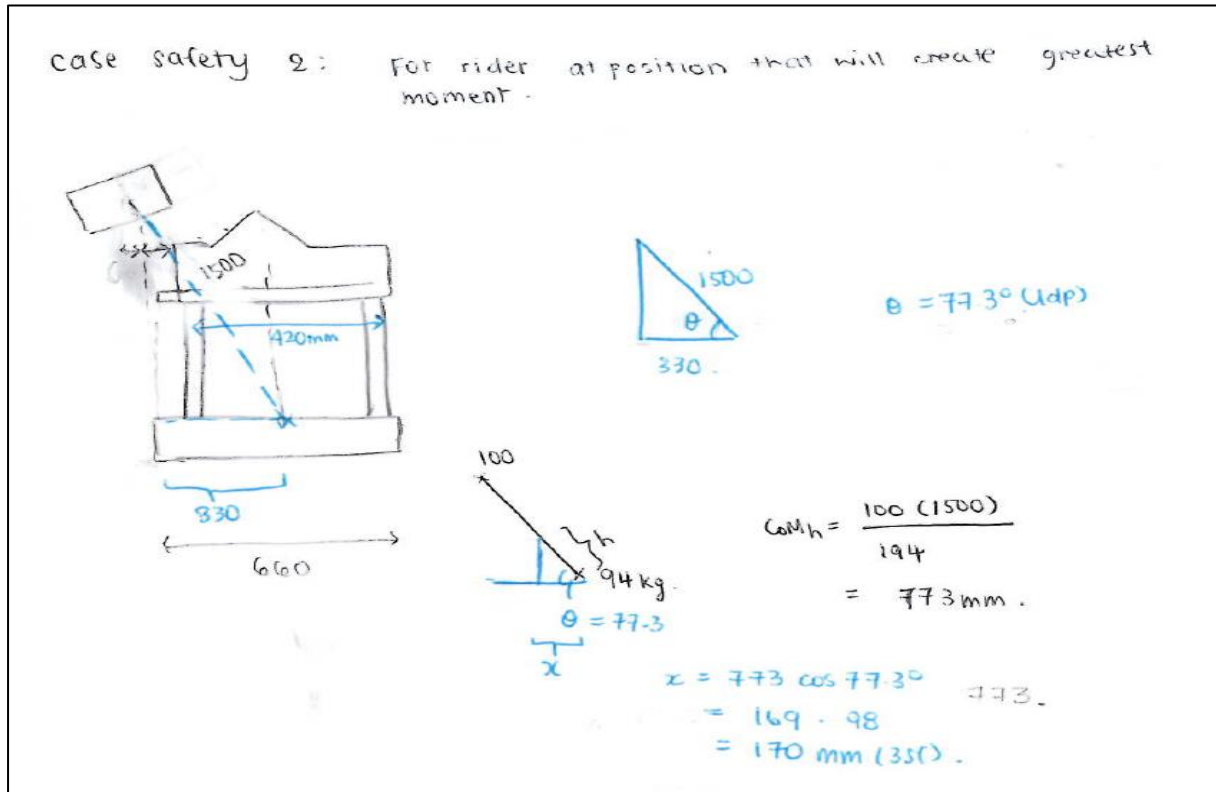 case safety 2: For rider at position that will create greatest
moment.
1500
420mm
330
660
1500
θ
330.
θ = 77.3° (1dp)
100
h
94 kg.
θ = 77.3
x
CoM h = 100 (1500) / 194
= 773 mm.
x = 773 cos 77.3°
773.
= 169.98
= 170 mm (3sf).